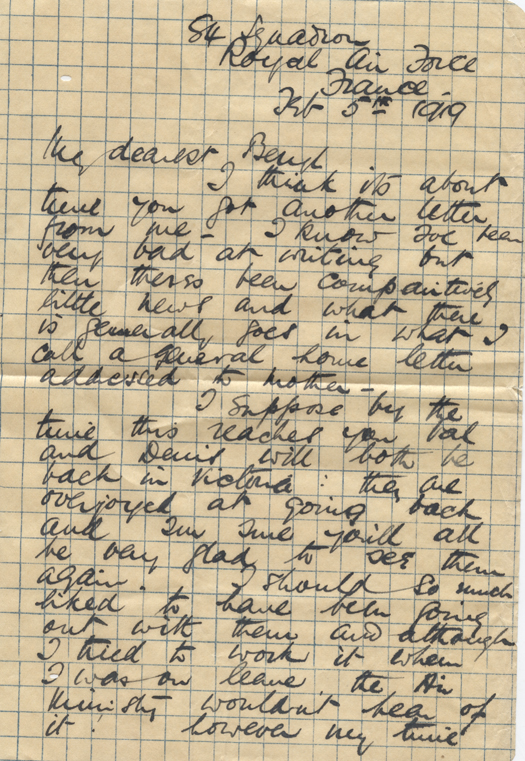 84 Squadron
Royal Air Force
France.
Feb 5th 1919
My dearest Beryl
I think its about
time you got another letter
from me – I know I've been
very bad at writing but
then theres been comparitively
little news and what there
is generally goes in what I
call a general home letter
addressed to mother –
I suppose by the
time this reaches you Hal
and Denis will both be
back in Victoria : they are
overjoyed at going back
and I'm sure you'll all
be very glad to see them
again. I should so much
liked to have been going
out with them and although
I tried to work it when
I was on leave the Air
Ministry wouldn't hear of
it! however my time